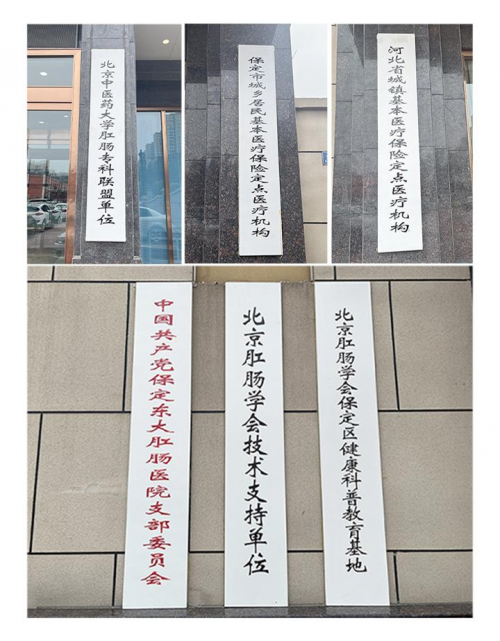 北京中医药大学肛肠专科联盟单位
保定市城乡居民基本医疗保险定点医疗机构
河北省城镇基本医疗保险定点医疗机构
中国共产党保定东大肛肠医院支部委员会
北京肛肠学会技术支持单位
北京肛肠学会保定区健康科普教育基地